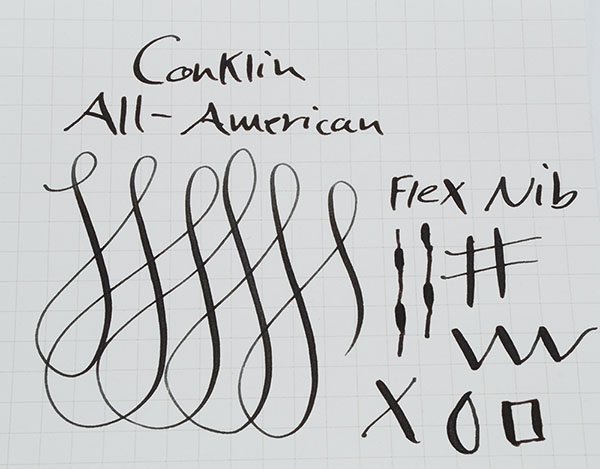 Conklin
All-American
Flex Nib